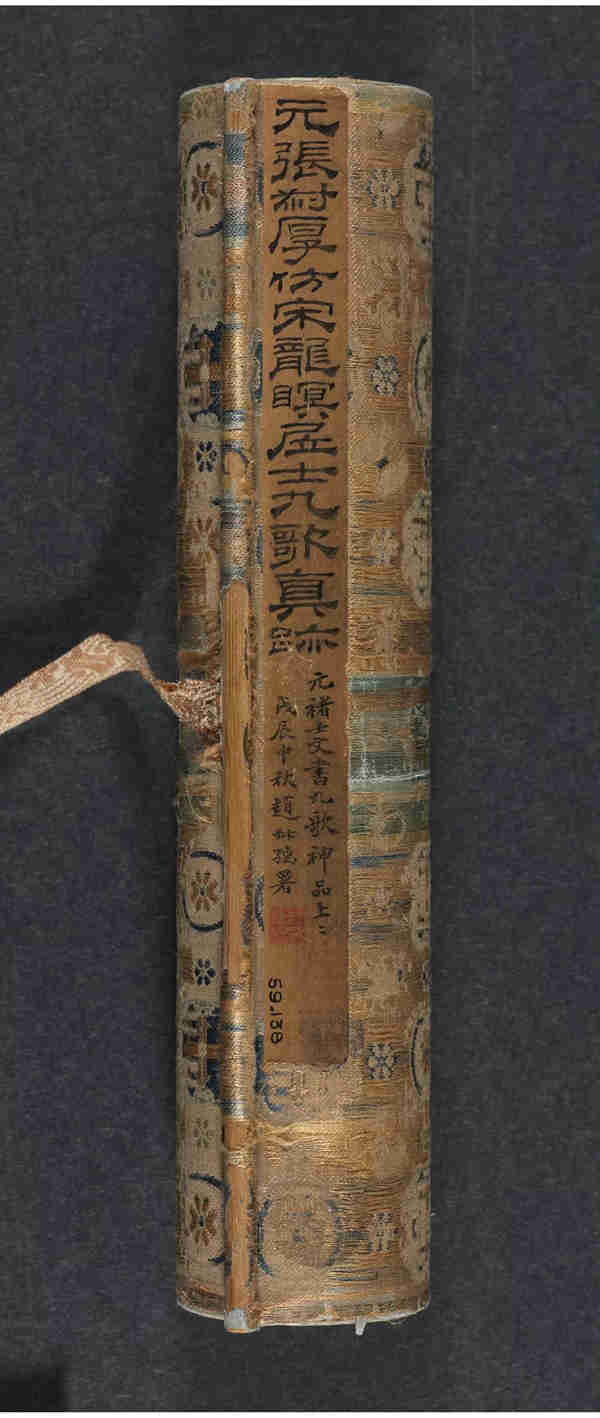 元張叔厚仿宋龍瞑居士九歌真跡
元褚士文書九歌神品上〻
戊辰中秋趙叔孺署
59.138